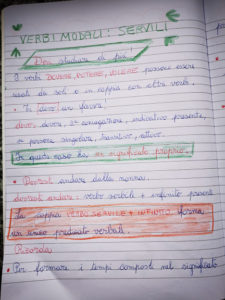 VERBI MODALI: SERVILI
Devi studiare di più!
I verbi DOVERE, POTERE, VOLERE possono essere
usati da soli o in coppia con altri verbi.
• Ti devo un favore!
devo: dovere, 2ª coniugazione, indicativo presente,
1ª persona singolare, transitivo, attivo.
In questo caso ha un significato proprio.
• Dovresti andare dalla nonna.
dovresti andare: verbo servile + infinito presente
La coppia VERBO SERVILE + INFINITO forma
un unico predicato verbale.
Ricorda
• Per formare i tempi composti nel significato